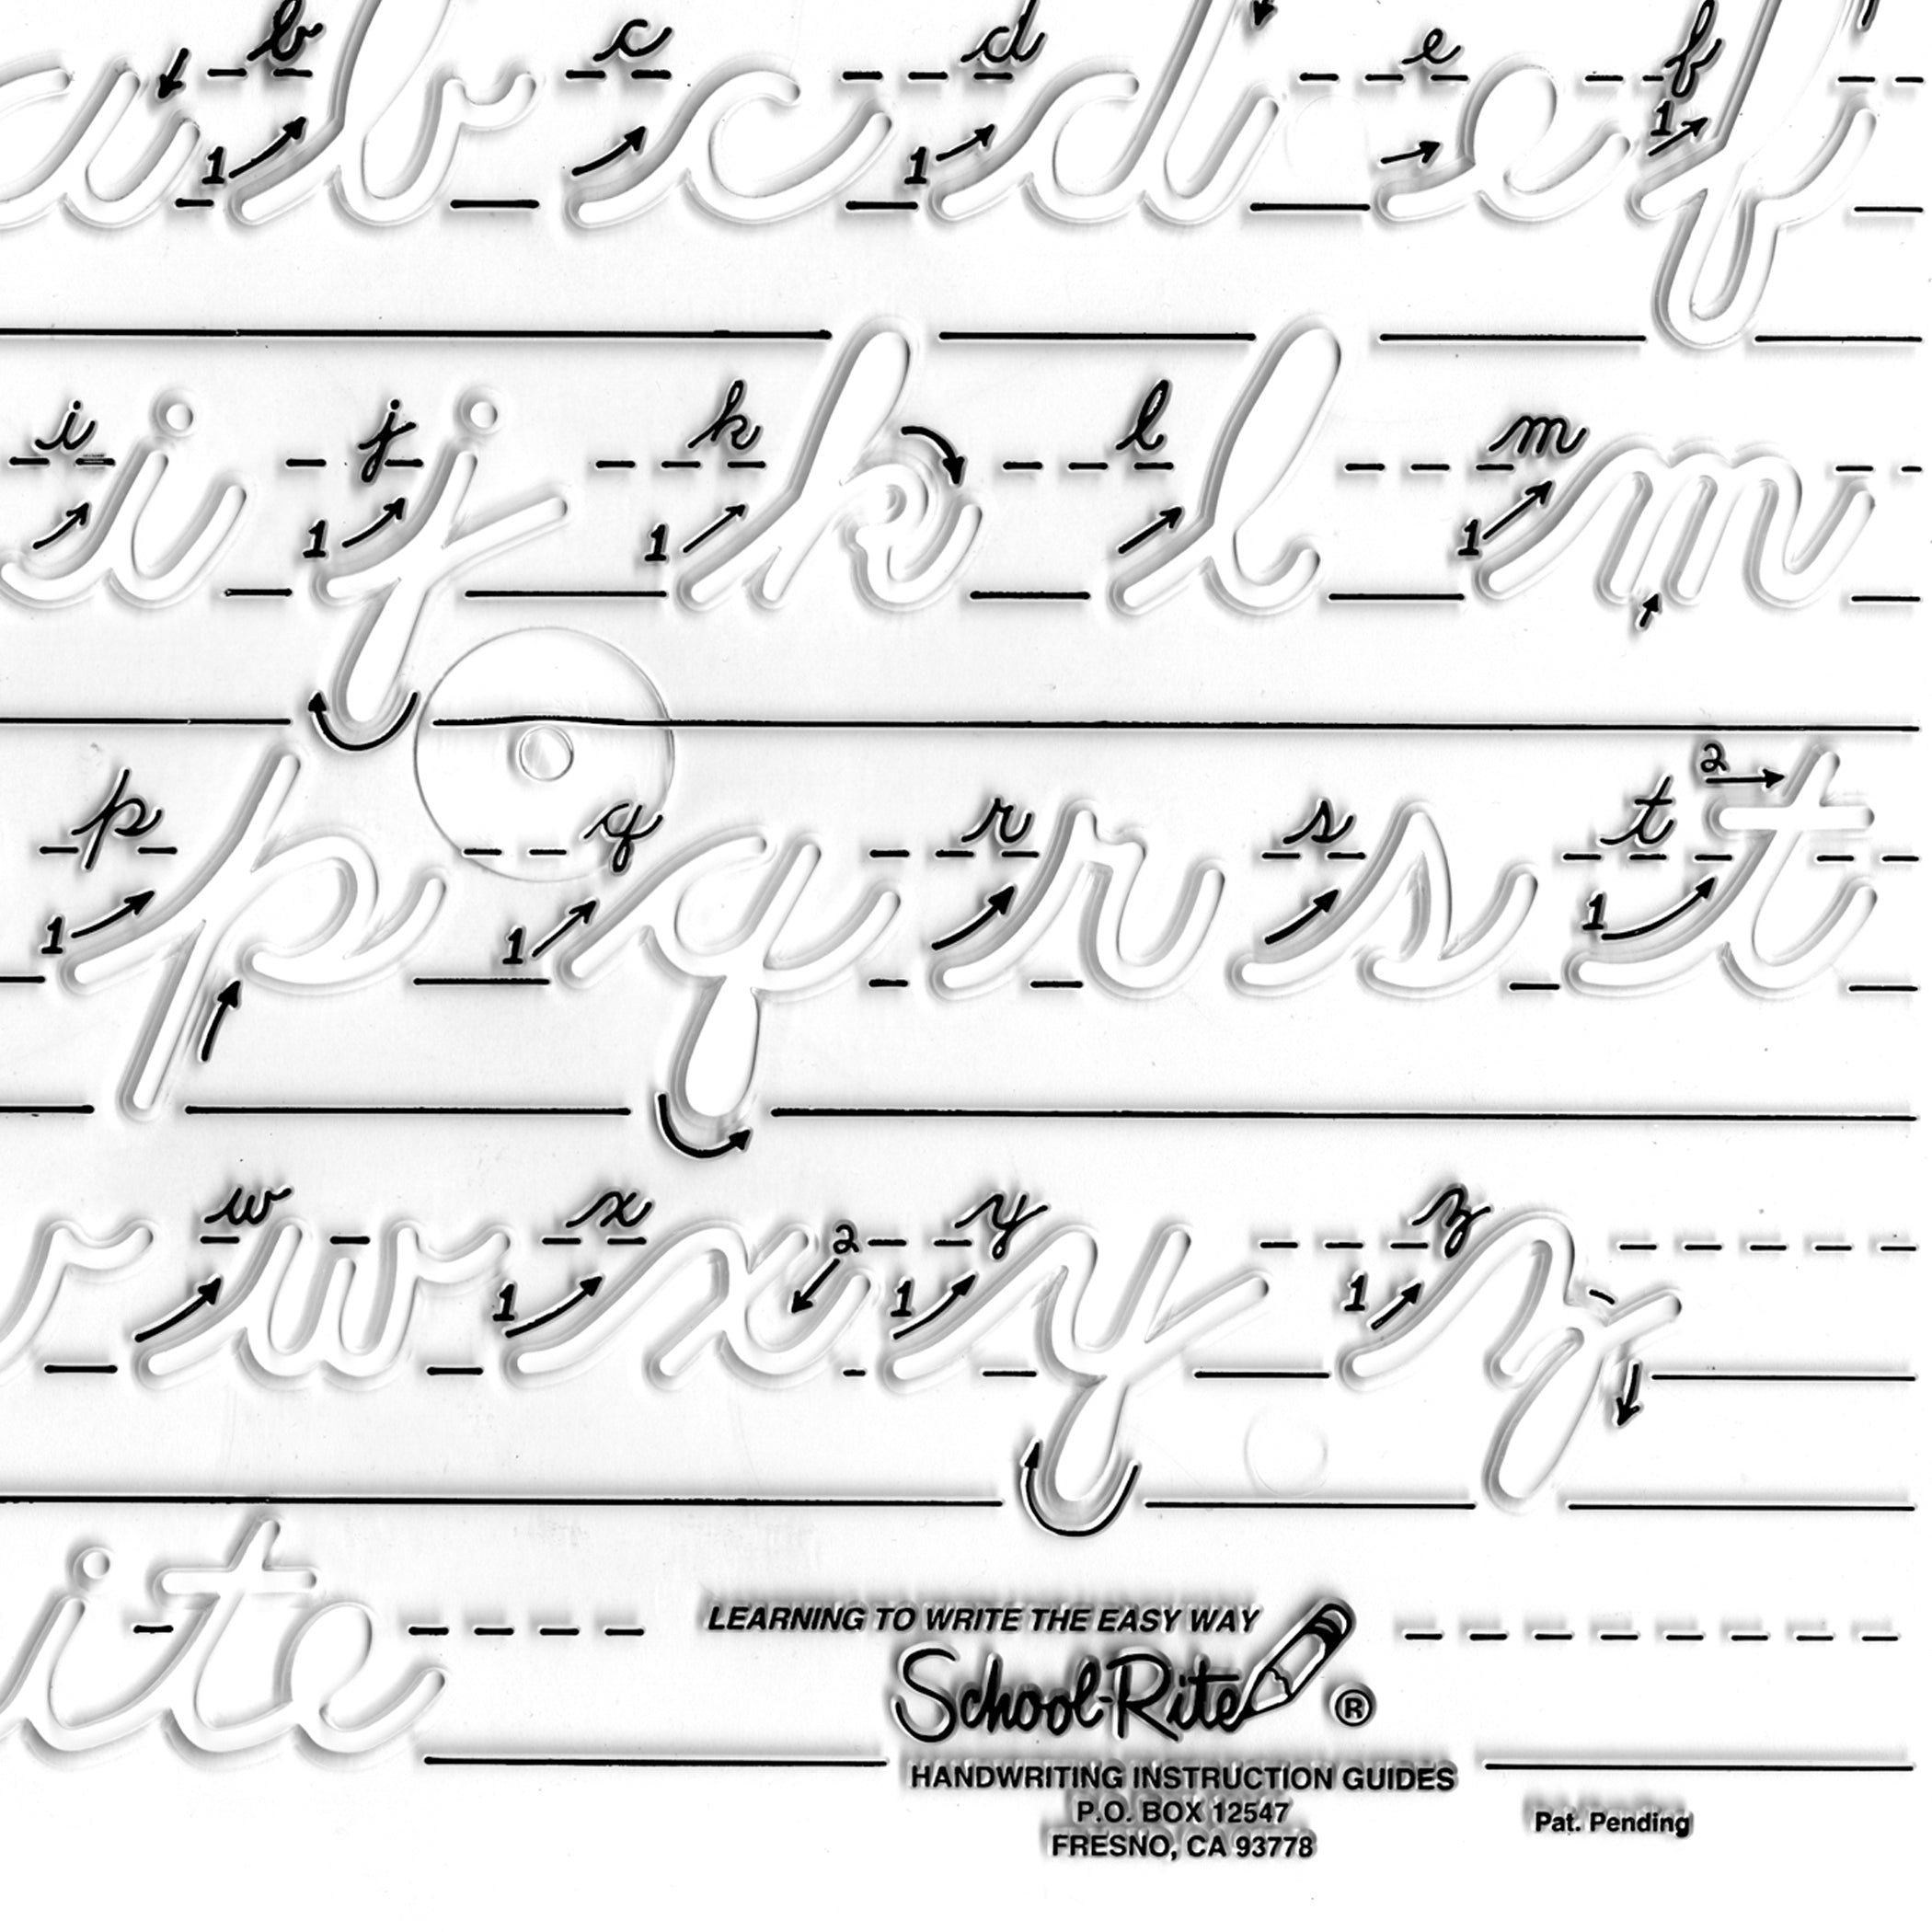 a b c d e f
b c d e f
1 1 1
i j k l m
i j k l m
1 1 1
p q r s t
p q r s t
2
1 1 1
w x y z
v w x y z
2
1 1 1
ite
LEARNING TO WRITE THE EASY WAY
School-Rite ®
HANDWRITING INSTRUCTION GUIDES
P.O. BOX 12547
FRESNO, CA 93778
Pat. Pending